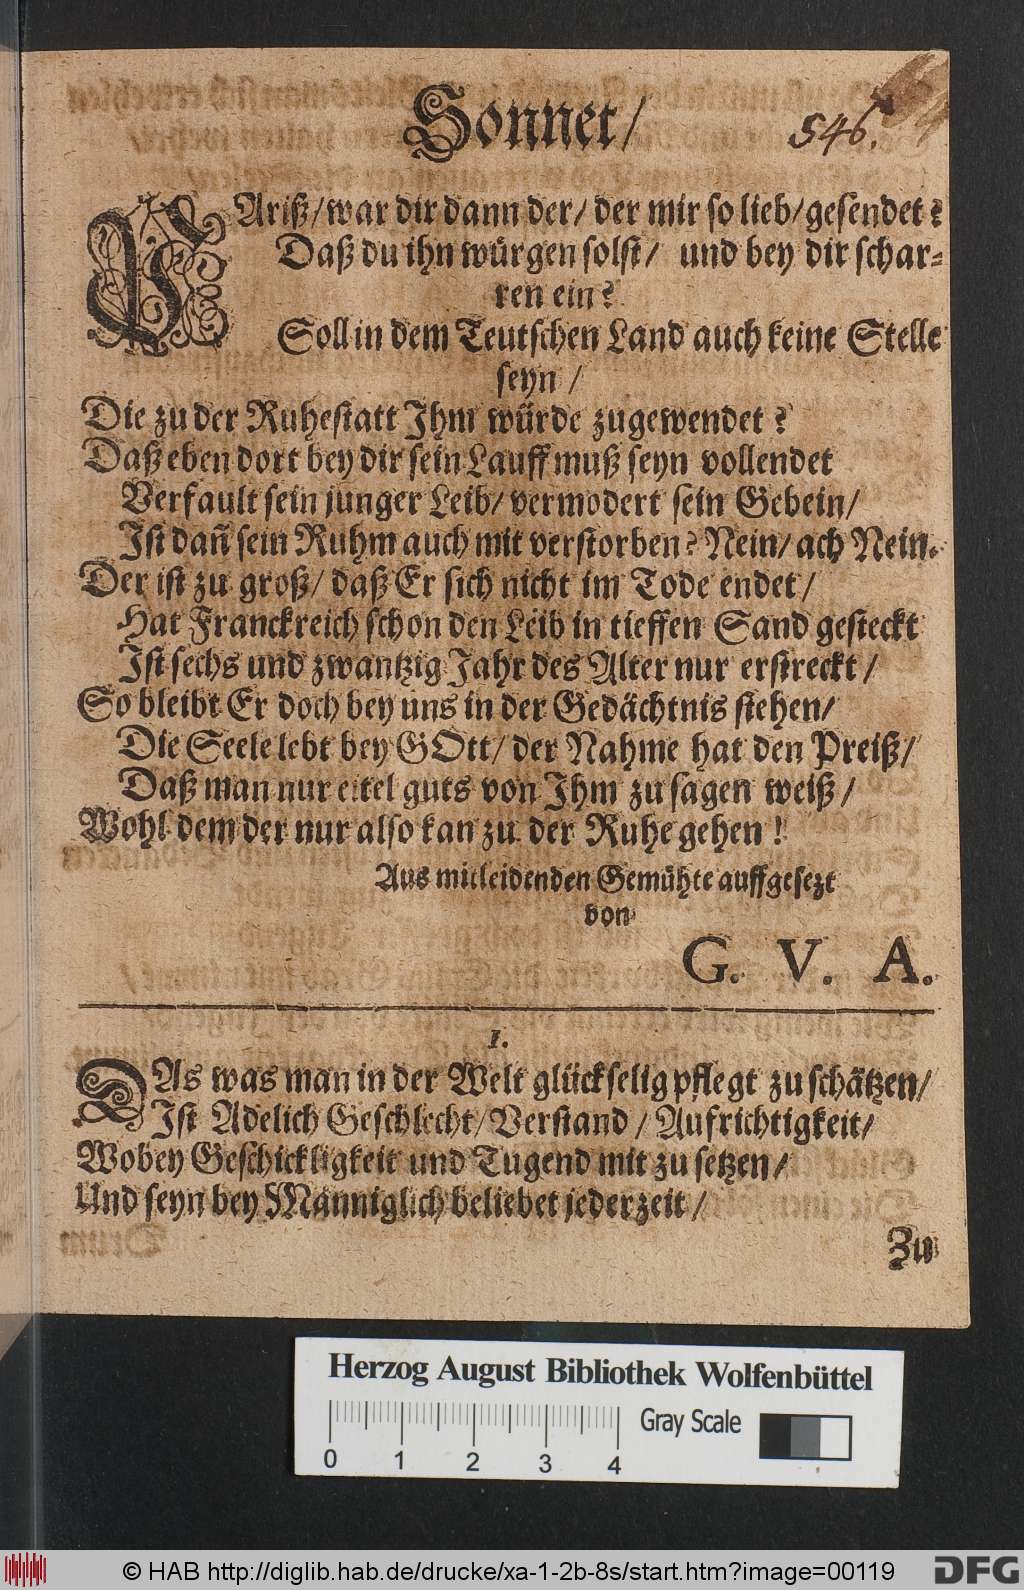 Sonnet/
546.
PAriß/war dir dann der/der mir so lieb/gesendet?
Daß du ihn würgen solst/ und bey dir schar-
ren ein?
Soll in dem Teutschen Land auch keine Stelle
seyn /
Die zu der Ruhestatt Ihm würde zugewendet?
Daß eben dort bey dir sein Lauff muß seyn vollendet
Verfault sein junger Leib/ vermodert sein Gebein/
Ist dañ sein Ruhm auch mit verstorben? Nein/ ach Nein.
Der ist zu groß/ daß Er sich nicht im Tode endet/
Hat Franckreich schon den Leib in tieffen Sand gesteckt
Ist sechs und zwantzig Jahr des Alter nur erstreckt/
So bleibt Er doch bey uns in der Gedächtnis stehen/
Die Seele lebt bey GOtt/ der Nahme hat den Preiß/
Daß man nur eitel guts von Ihm zu sagen weiß/
Wohl dem der nur also kan zu der Ruhe gehen!
Aus mitleidenden Gemühte auffgesezt
von
G. V. A.
I.
DAs was man in der Welt glückselig pflegt zu schätzen/
Ist Adelich Geschlecht/Verstand/Aufrichtigkeit/
Wobey Geschickligkeit und Tugend mit zu setzen/
Und seyn bey Männiglich beliebet jederzeit/
Zu
Herzog August Bibliothek Wolfenbüttel
Gray Scale
0 1 2 3 4
© HAB http://diglib.hab.de/drucke/xa-1-2b-8s/start.htm?image=00119
DFG